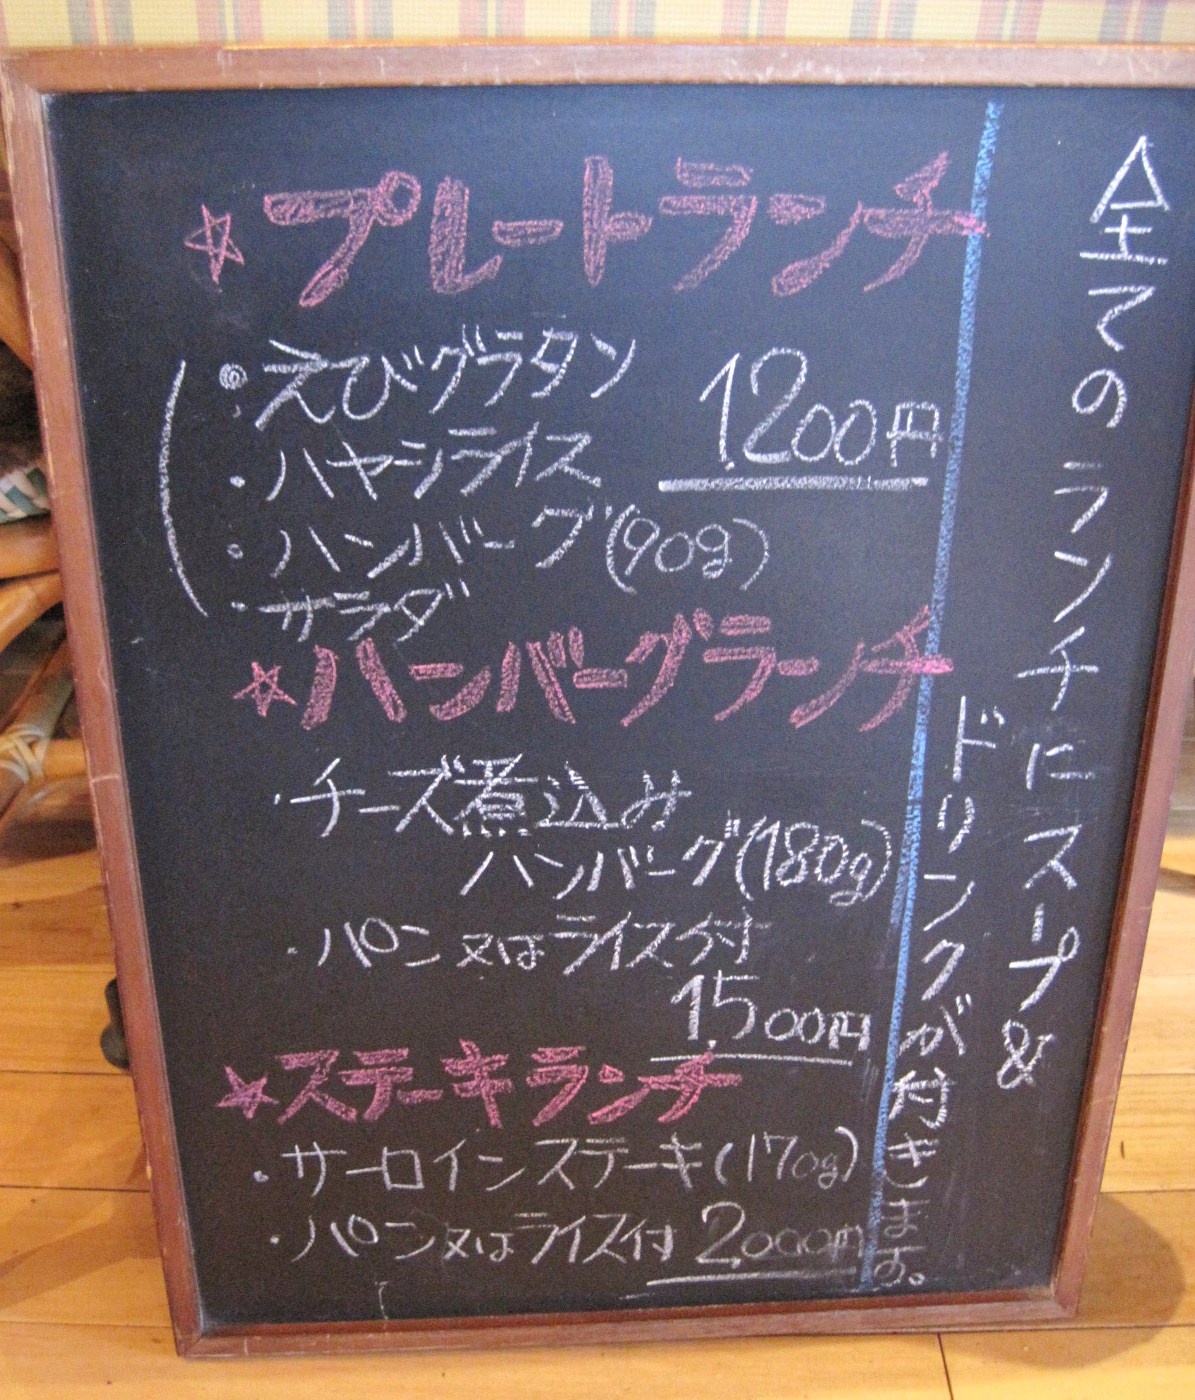 全てのランチにスープ&
ドリンクが付きます。
☆プレートランチ
・えびグラタン
・ハヤシライス
1,200円
・ハンバーグ(90g)
・サラダ
☆ハンバーグランチ
・チーズ煮込み
ハンバーグ(180g)
・パン又はライス付
1,500円
☆ステーキランチ
・サーロインステーキ(170g)
・パン又はライス付 2,000円